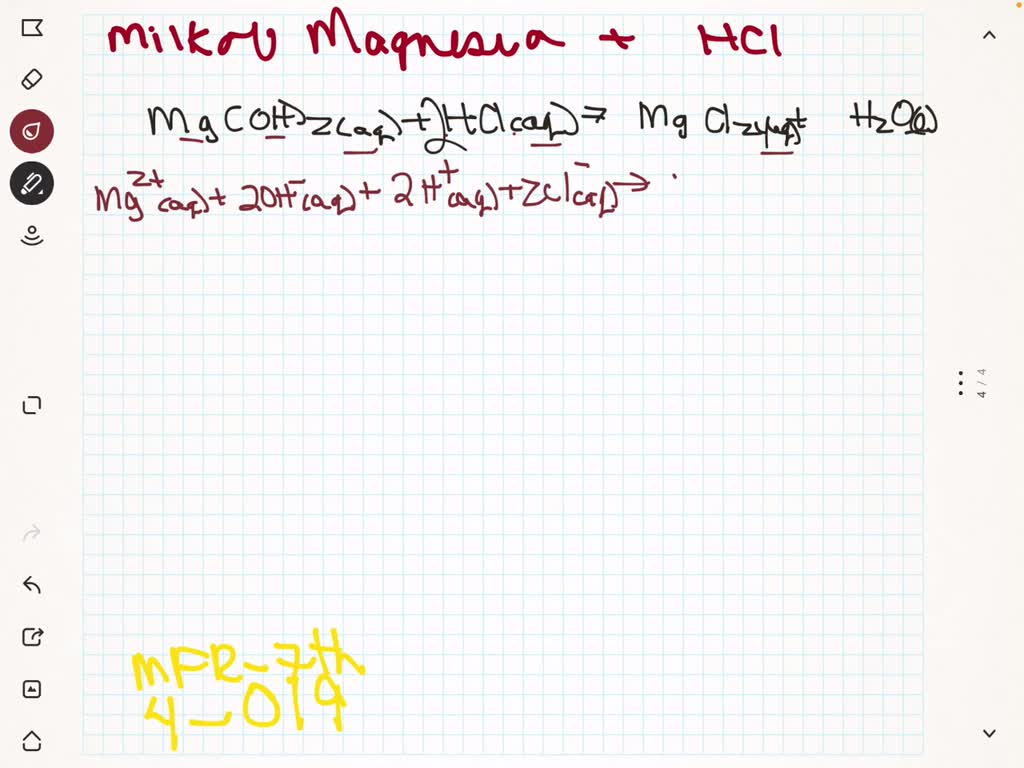 Milk of Magnesia + HCl
Mg(OH)2(aq) + 2HCl(aq) → MgCl2(aq) + H2O(l)
Mg2+(aq) + 2OH-(aq) + 2H+(aq) + 2Cl-(aq) →
4 / 4
MFR-7th
4-019